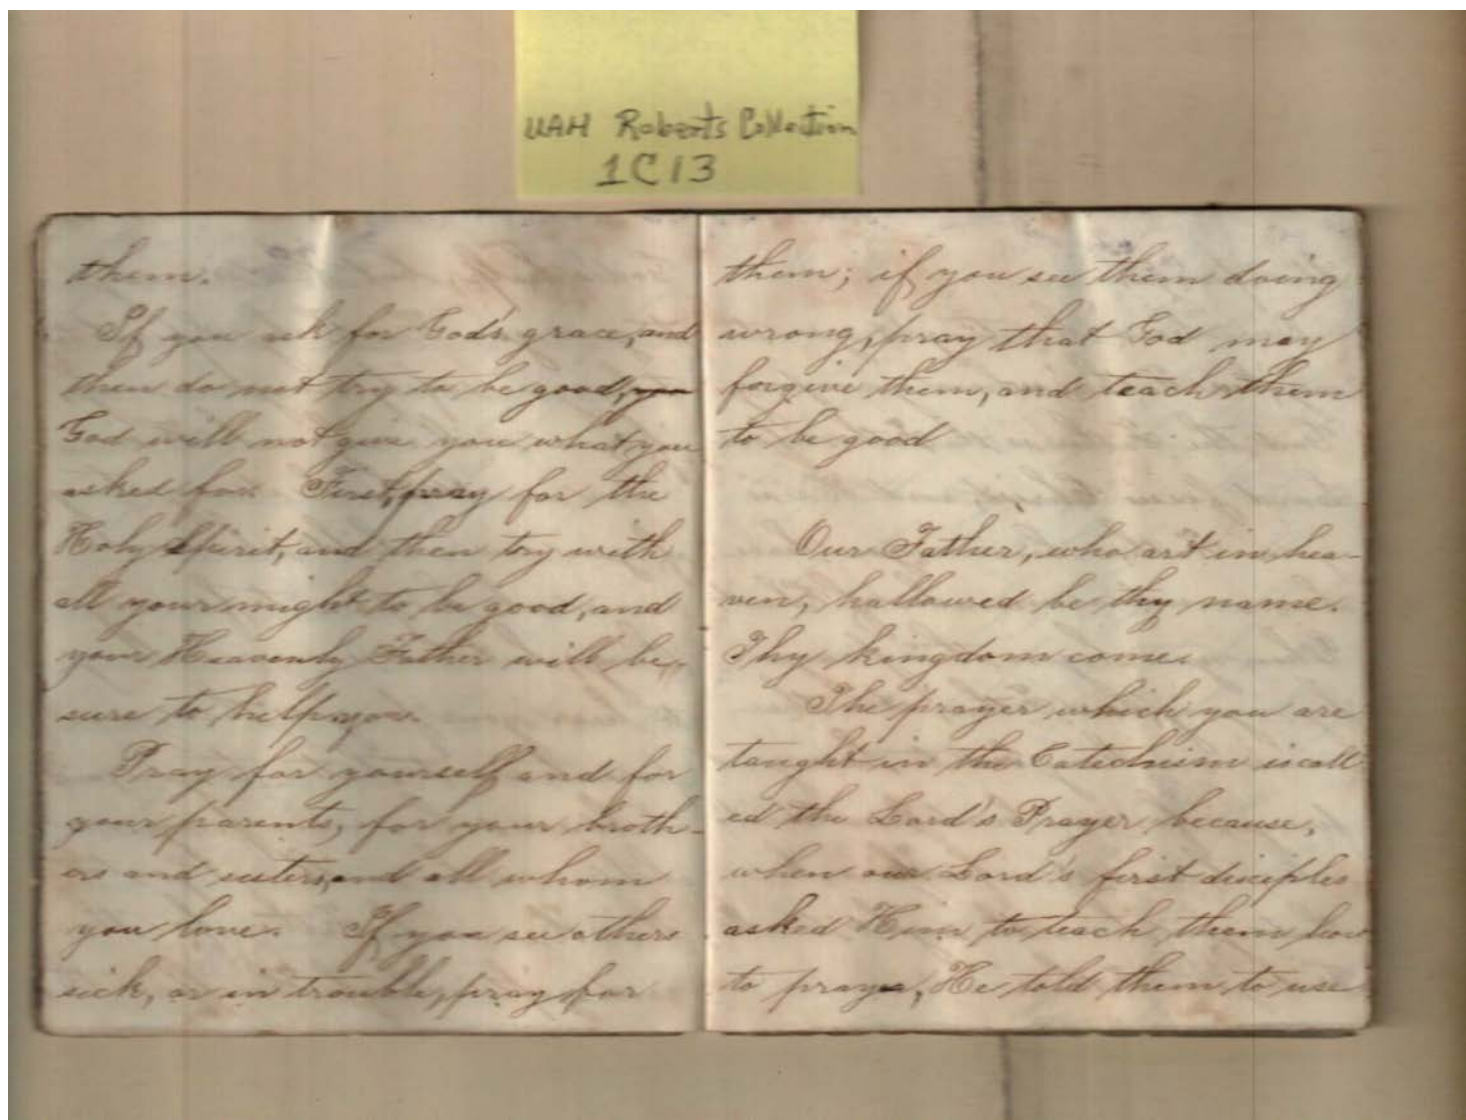 UAH Roberts Collection
1C13
them.
If you ask for God's grace, and
then do not try to be good, you
God will not give you what you
asked for. First, pray for the
Holy Spirit, and then try with
all your might to be good, and
your Heavenly Father will be
sure to help you.
Pray for yourself, and for
your parents, for your broth-
ers and sisters, and all whom
you love. If you see others
sick, or in trouble, pray for
them; if you see them doing
wrong, pray that God may
forgive them, and teach them
to be good
Our Father, who art in hea-
ven, hallowed be thy name.
Thy kingdom come.
The prayer which you are
taught in the Catechism is call
ed the Lord's Prayer because,
when our Lord's first disciples
asked Him to teach them how
to pray, He told them to use